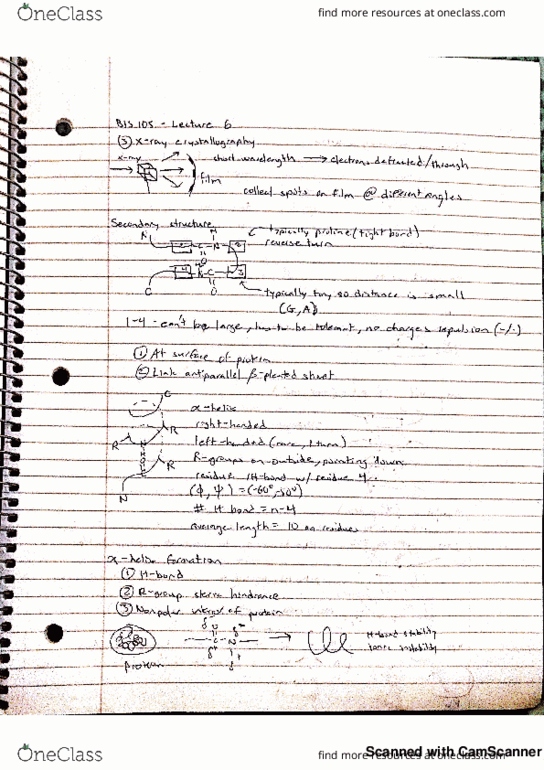 OneClass
find more resources at oneclass.com
BIS 105 - Lecture 6
③ X-ray crystallography
x-ray
short wavelength → electrons defracted/through
film
collect spots on film @ different angles
Secondary structure
N
typically proline (tight bond)
reverse turn
C
typically tiny so distance is small
(G, A)
1-4 - can't be large, has to be tolerant, no charges repulsion (-/-)
① At surface of protein
② Link antiparallel β-pleated sheet
α-helix
right-handed
left-handed (rare, 1 turn)
R-groups on outside, pointing down
residue 1 H-bond w/ residue 4..
(ϕ, ψ) = (-60°, -50°)
# H bond = n-4
average length = 10 aa residues
C
R
R
R
N
α-helix formation
① H-bond
② R-group steric hindrance
③ Nonpolar interior of protein
protein
H-bond stability
OneClass
find more resources at oneclass.com
Scanned with CamScanner